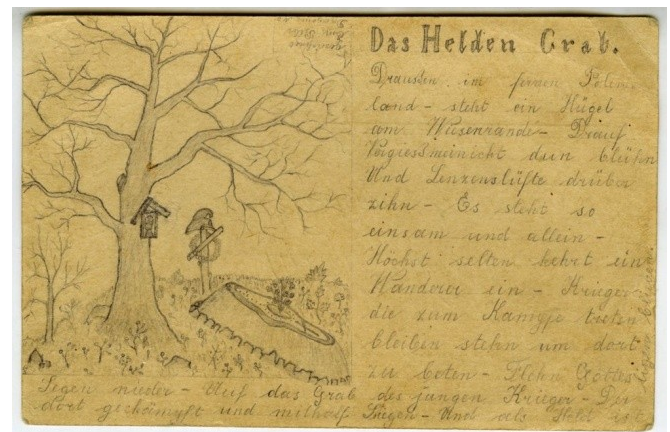 Das Helden Grab.
Draussen im fernen Polen-
land - steht ein Hügel
am Wiesenrande - Drauf
Vergissmeinicht dun blühn
Und Lenzenslüfte drüber
zihn - Es steht so
einsam und allein -
Höchst selten kehrt ein
Wanderer ein - Krieger
die zum Kampfe ziehn
bleiben stehn um dort
zu beten - Flehn Gottes
Segen nieder - Auf das Grab des jungen Krieger - Der
dort gekämpft und mithalf Siegen - Und als Held ist